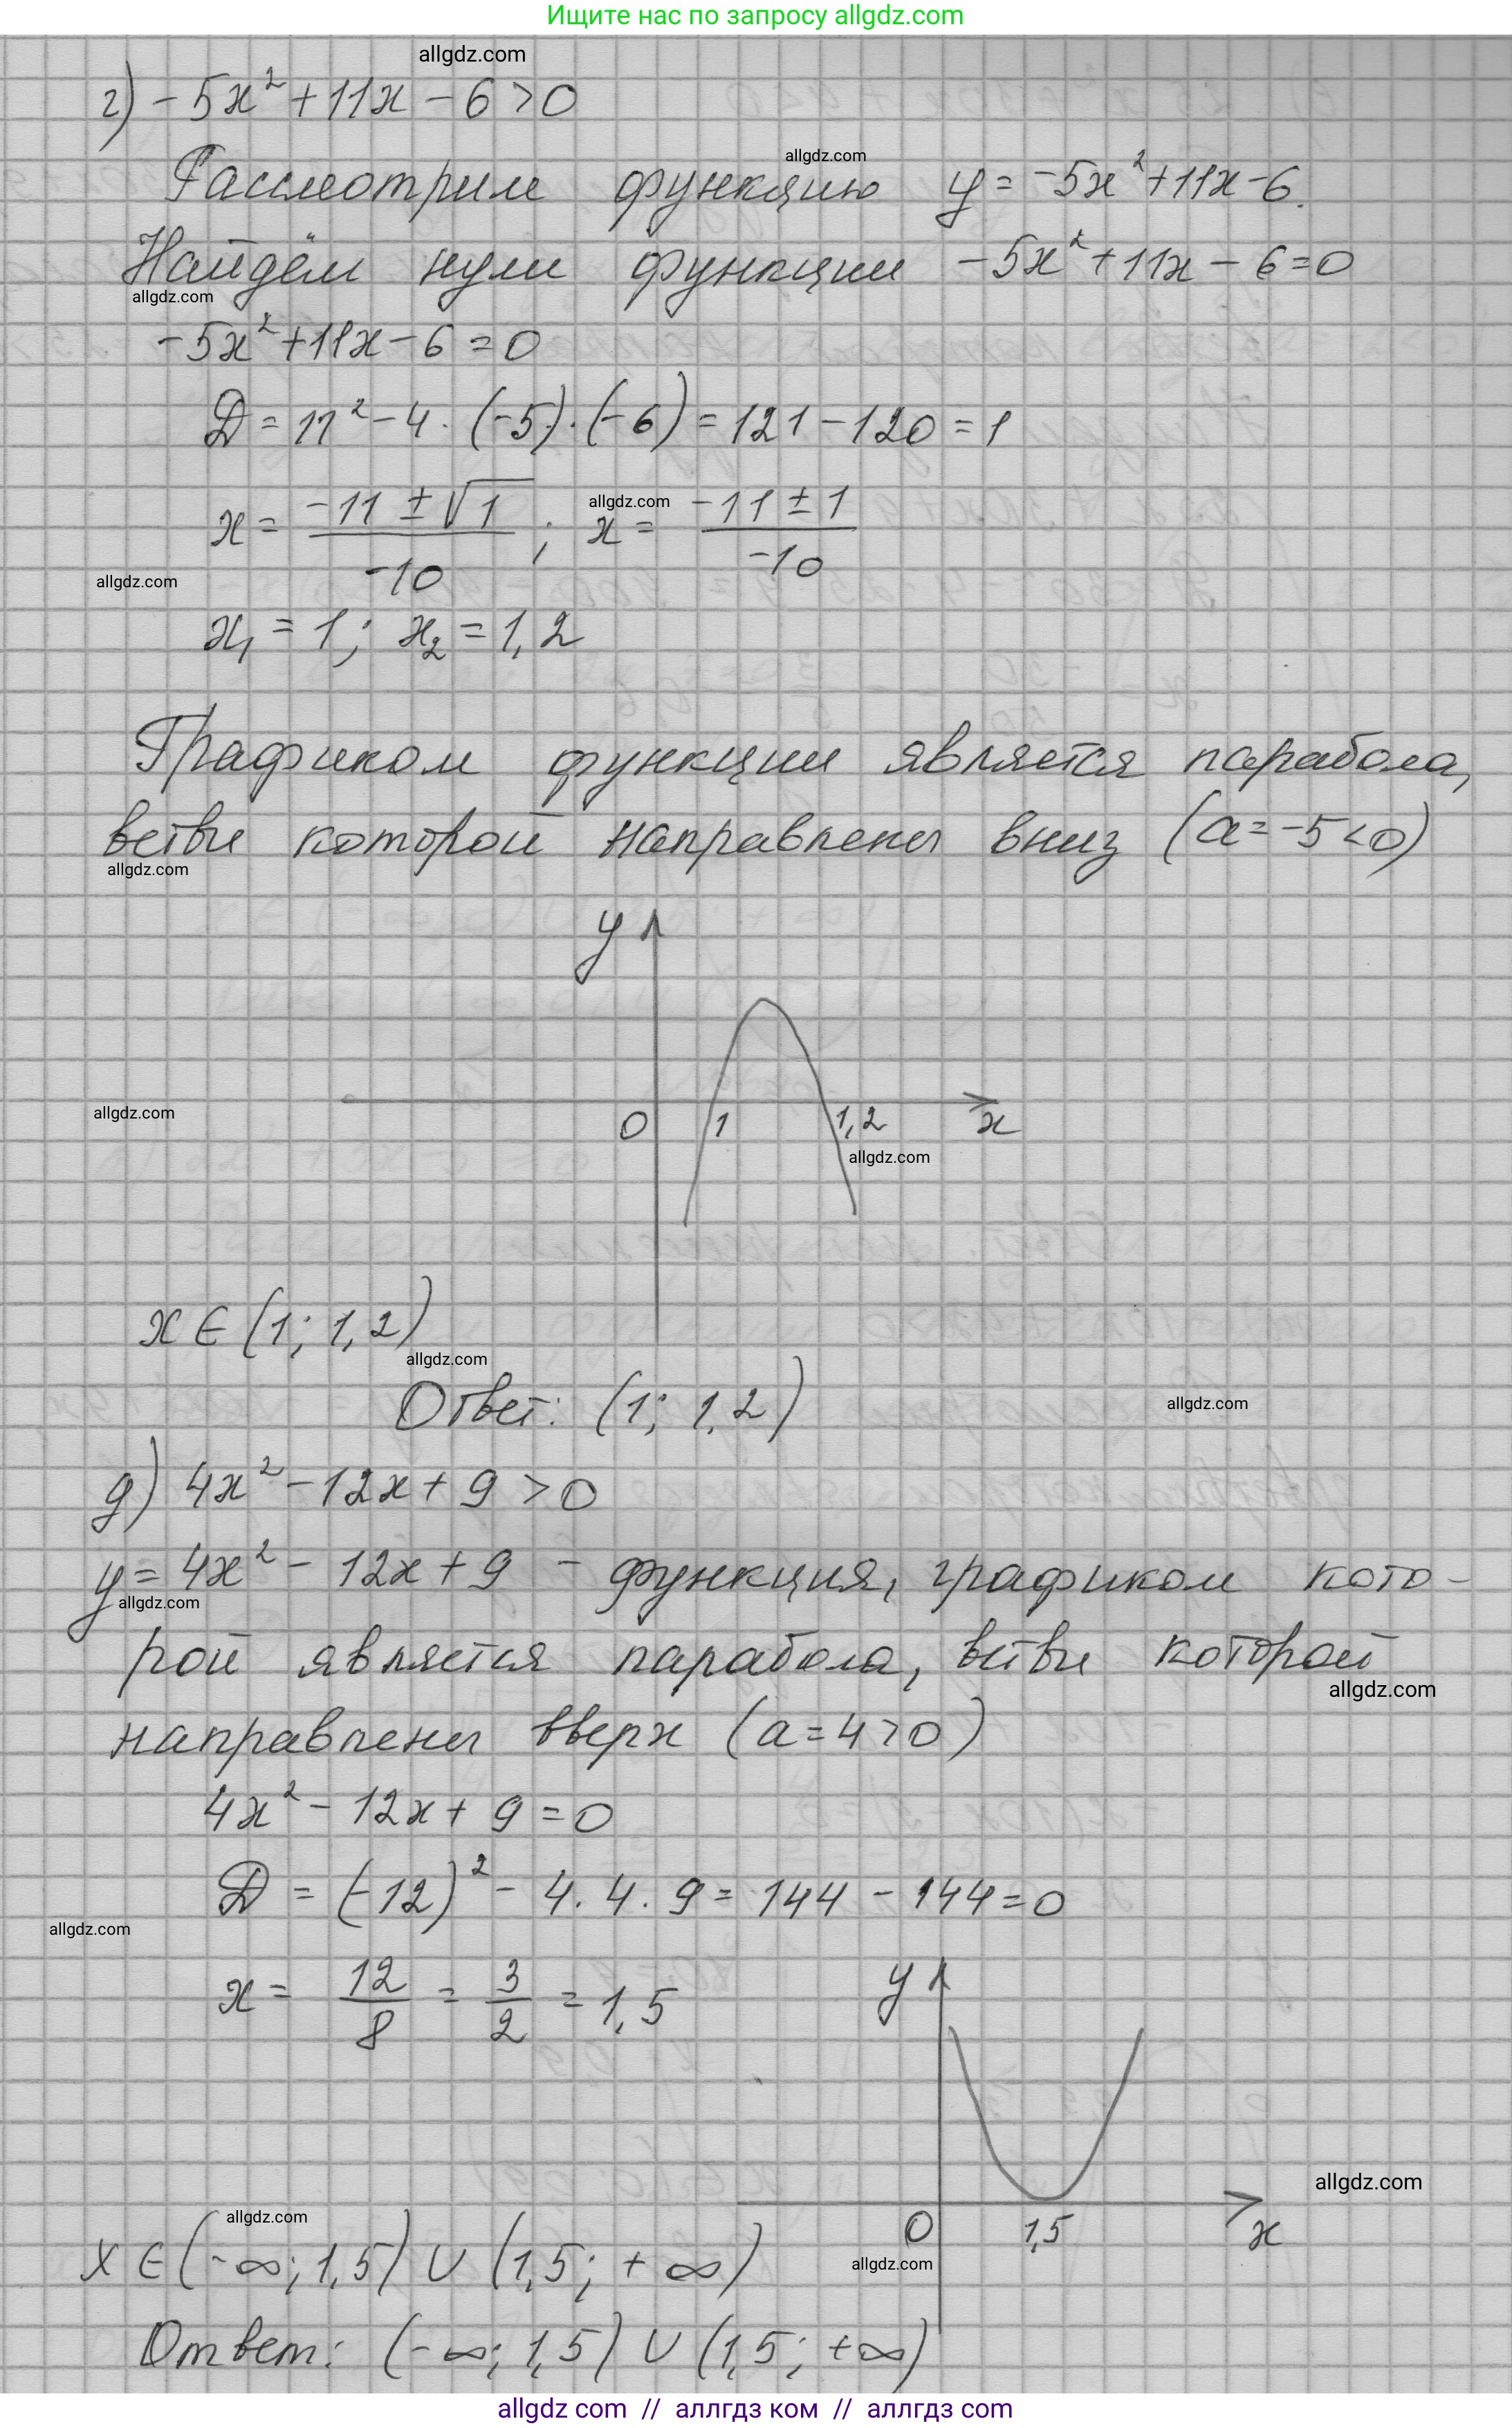 Ищите нас по запросу allgdz.com
allgdz.com
г) -5x² + 11x - 6 > 0
allgdz.com
Рассмотрим функцию y = -5x² + 11x - 6.
Найдём нули функции -5x² + 11x - 6 = 0
allgdz.com
-5x² + 11x - 6 = 0
D = 11² - 4 · (-5) · (-6) = 121 - 120 = 1
x = (-11 ± √1)/(-10) ; x = (-11 ± 1)/(-10)
allgdz.com
allgdz.com
x₁ = 1; x₂ = 1,2
Графиком функции является парабола,
ветви которой направлены вниз (a = -5 < 0)
allgdz.com
y
allgdz.com
0 1 1,2 x
allgdz.com
x ∈ (1; 1,2)
allgdz.com
Ответ: (1; 1,2)
allgdz.com
д) 4x² - 12x + 9 > 0
y = 4x² - 12x + 9 - функция, графиком кото-
allgdz.com
рой является парабола, ветви которой
allgdz.com
направлены вверх (a = 4 > 0)
4x² - 12x + 9 = 0
D = (-12)² - 4 · 4 · 9 = 144 - 144 = 0
allgdz.com
x = 12/8 = 3/2 = 1,5
y
allgdz.com
0 1,5 x
allgdz.com
allgdz.com
x ∈ (-∞; 1,5) ∪ (1,5; +∞)
Ответ: (-∞; 1,5) ∪ (1,5; +∞)
allgdz.com // аллгдз ком // аллгдз com